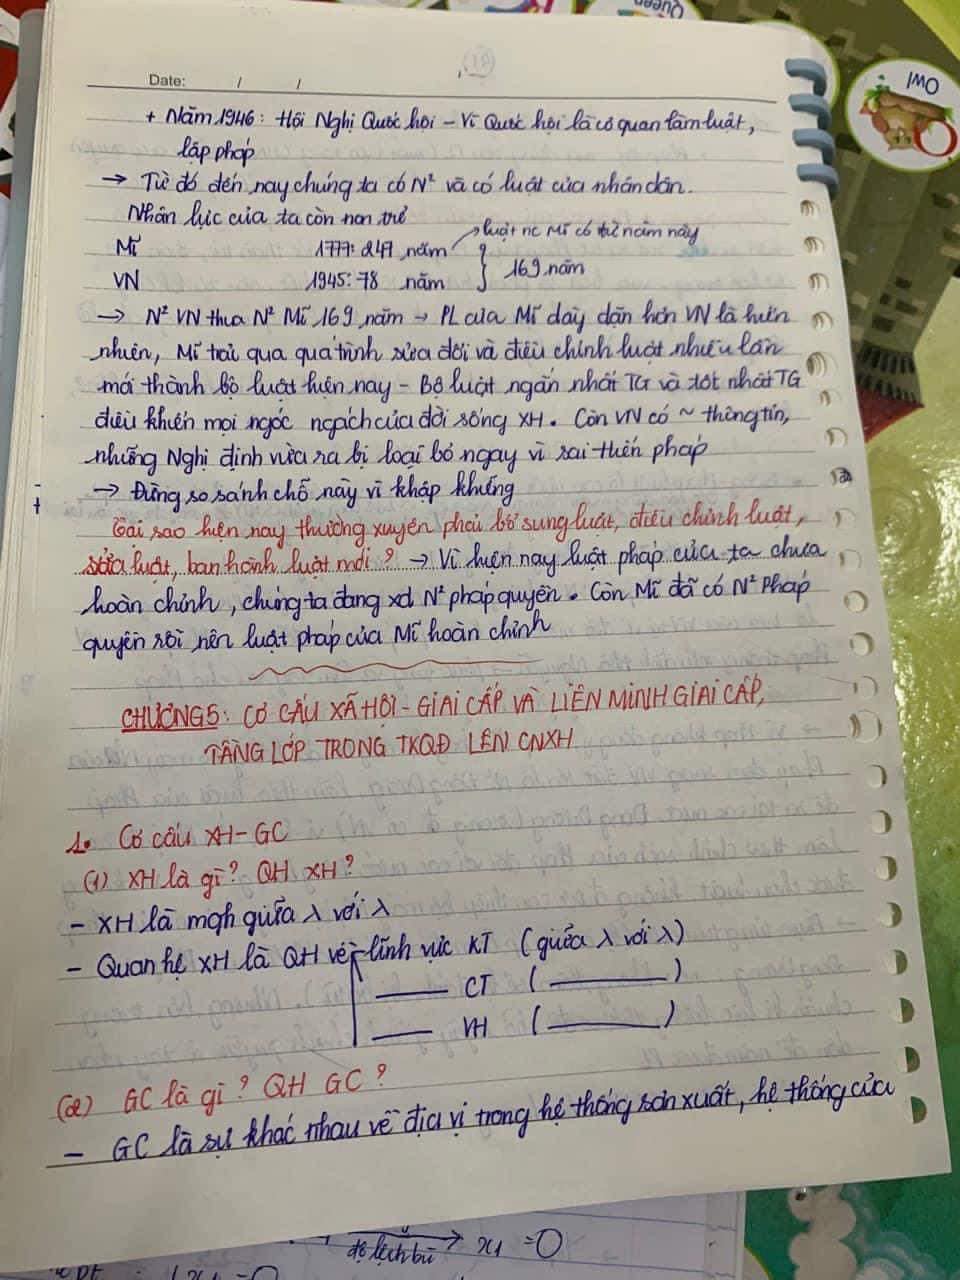 Queen
OWl
Date: / /
+ Năm 1946: Hội Nghị Quốc hội – Vì Quốc hội là cơ quan làm luật,
lập pháp
→ Từ đó đến nay chúng ta có N² và có luật của nhân dân.
Nhân lực của ta còn non trẻ
→ luật nc Mĩ có từ năm này
Mĩ 1777: 247 năm
VN 1945: 78 năm } 169 năm
→ N² VN thua N² Mĩ 169 năm → PL của Mĩ dày dặn hơn VN là hiển
nhiên, Mĩ trải qua quá trình sửa đổi và điều chỉnh luật nhiều lần
mới thành bộ luật hiện nay – Bộ luật ngắn nhất TG và tốt nhất TG
điều khiển mọi ngóc ngách của đời sống XH. Còn VN có ~ thông tin,
những Nghị định vừa ra bị loại bỏ ngay vì sai hiến pháp
→ Đừng so sánh chỗ này vì khập khiễng
Tại sao hiện nay thường xuyên phải bổ sung luật, điều chỉnh luật,
sửa luật, ban hành luật mới? → Vì hiện nay luật pháp của ta chưa
hoàn chỉnh, chúng ta đang xd N² pháp quyền. Còn Mĩ đã có N² Pháp
quyền rồi nên luật pháp của Mĩ hoàn chỉnh
CHƯƠNG 5: CƠ CẤU XÃ HỘI - GIAI CẤP VÀ LIÊN MINH GIAI CẤP,
TẦNG LỚP TRONG TKQĐ LÊN CNXH
1. Cơ cấu XH - GC
(1) XH là gì? QH XH?
– XH là mqh giữa λ với λ
– Quan hệ XH là QH về lĩnh vực KT (giữa λ với λ)
—— CT ( ——— )
—— VH ( ——— )
(2) GC là gì? QH GC?
– GC là sự khác nhau về địa vị trong hệ thống sản xuất, hệ thống của
độ lệch bù → x1 = 0